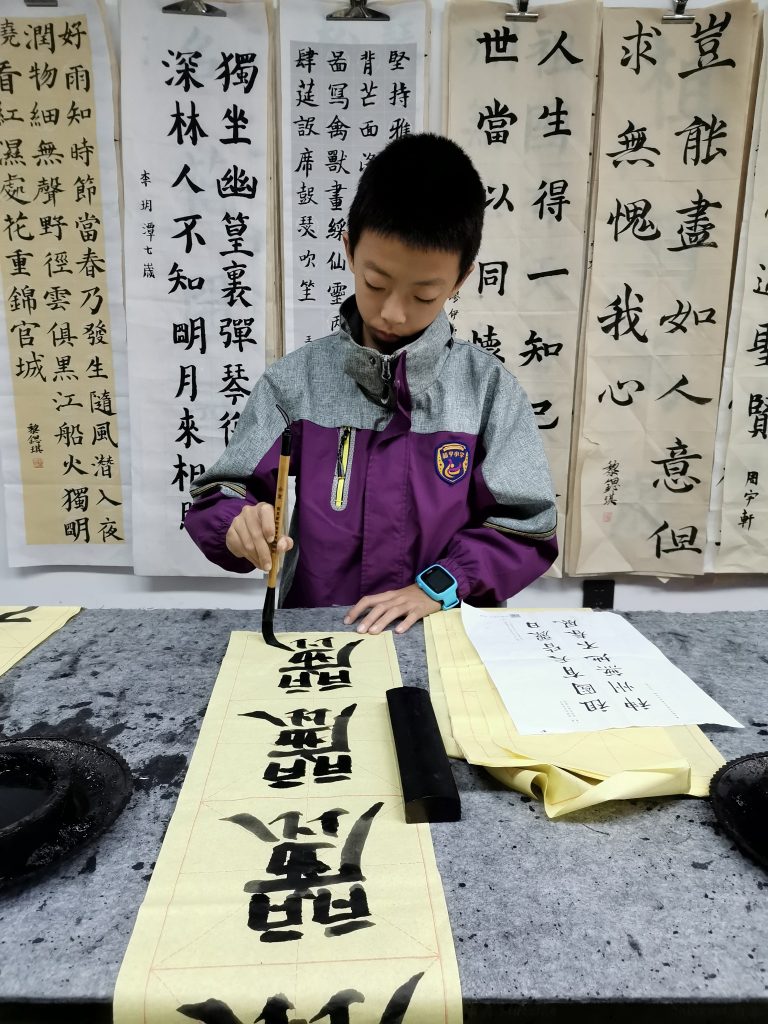 好雨知時節當春乃發生隨風潛入夜
潤物細無聲野徑雲俱黑江船火獨明
曉看紅濕處花重錦官城
獨坐幽篁裏彈琴
深林人不知明月來相
李玥潭七歲
堅持雅
背芒面
啚寫禽獸畫綵仙靈丙
肆筵設席鼓瑟吹笙
人生得一知己
世當以同懷
豈能盡如人意但
求無愧我心
聖賢
周宇軒
祖國有天皆麗日
神州無地不春